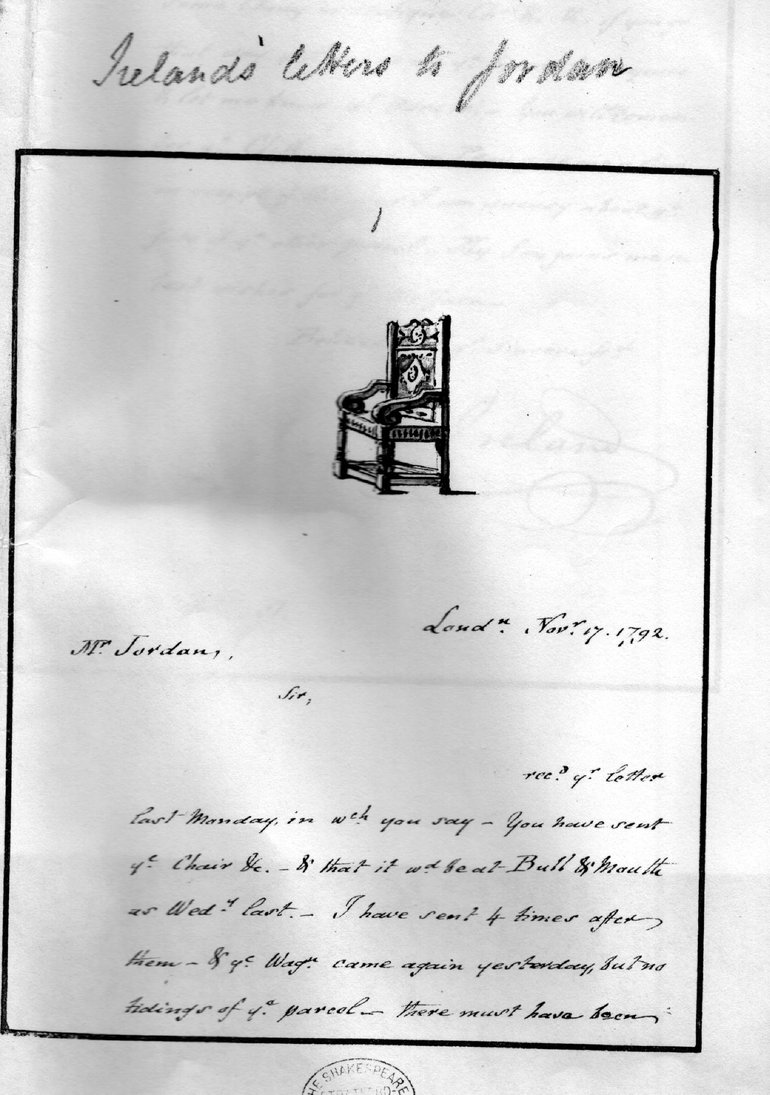 Ireland's letters to Jordan
1
Londn. Novr. 17. 1792.
Mr Jordan,
Sir,
recd. yr letter
last Monday, in wch you say – You have sent
ye Chair &c. – & that it wd be at Bull & Mouth
as Wedy last. – I have sent 4 times after
them – & ye Wagn. came again yesterday, but no
tidings of ye parcel – there must have been
THE SHAKESPEARE